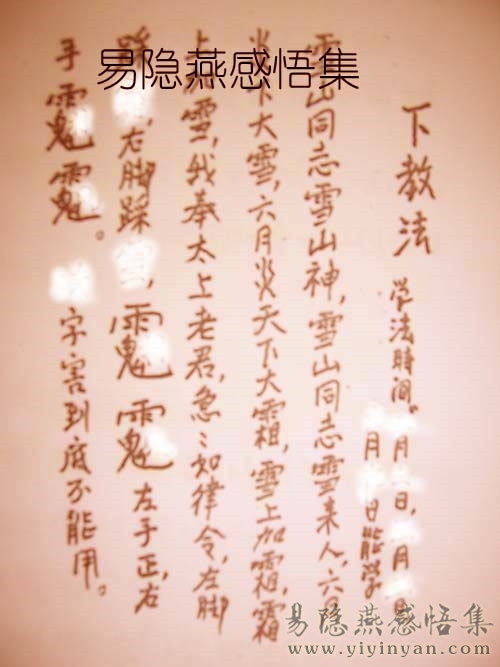 易隐燕感悟集
下教法 学法時间。月日,月
月日能学
雪山同志雪山神,雪山同志雪来人,六
下大雪,六月炎天下大霜,雪上加霜,霜
上雪,我奉太上老君,急〻如律令,左脚
踩,右脚踩,左手正,右
手。字害到底不能用。
易隐燕感悟集
www.yiyinyan.com